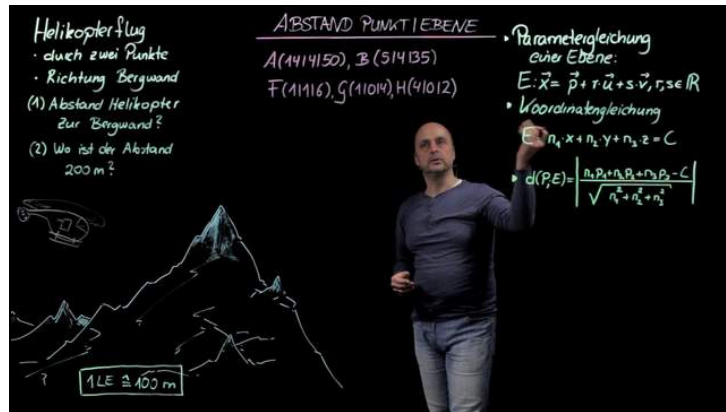 Helikopterflug
• durch zwei Punkte
• Richtung Bergwand
(1) Abstand Helikopter
zur Bergwand?
(2) Wo ist der Abstand
200 m?
1 LE ≙ 100 m
ABSTAND PUNKT|EBENE
A(14|4|50), B(5|4|35)
F(1|1|6), G(1|0|4), H(4|0|2)
• Parametergleichung
einer Ebene:
E: x⃗ = p⃗ + r·u⃗ + s·v⃗, r,s∈ℝ
• Koordinatengleichung
E: n₁·x + n₂·y + n₃·z = C
• d(P,E) = | (n₁p₁+n₂p₂+n₃p₃-C) / √(n₁²+n₂²+n₃²) |